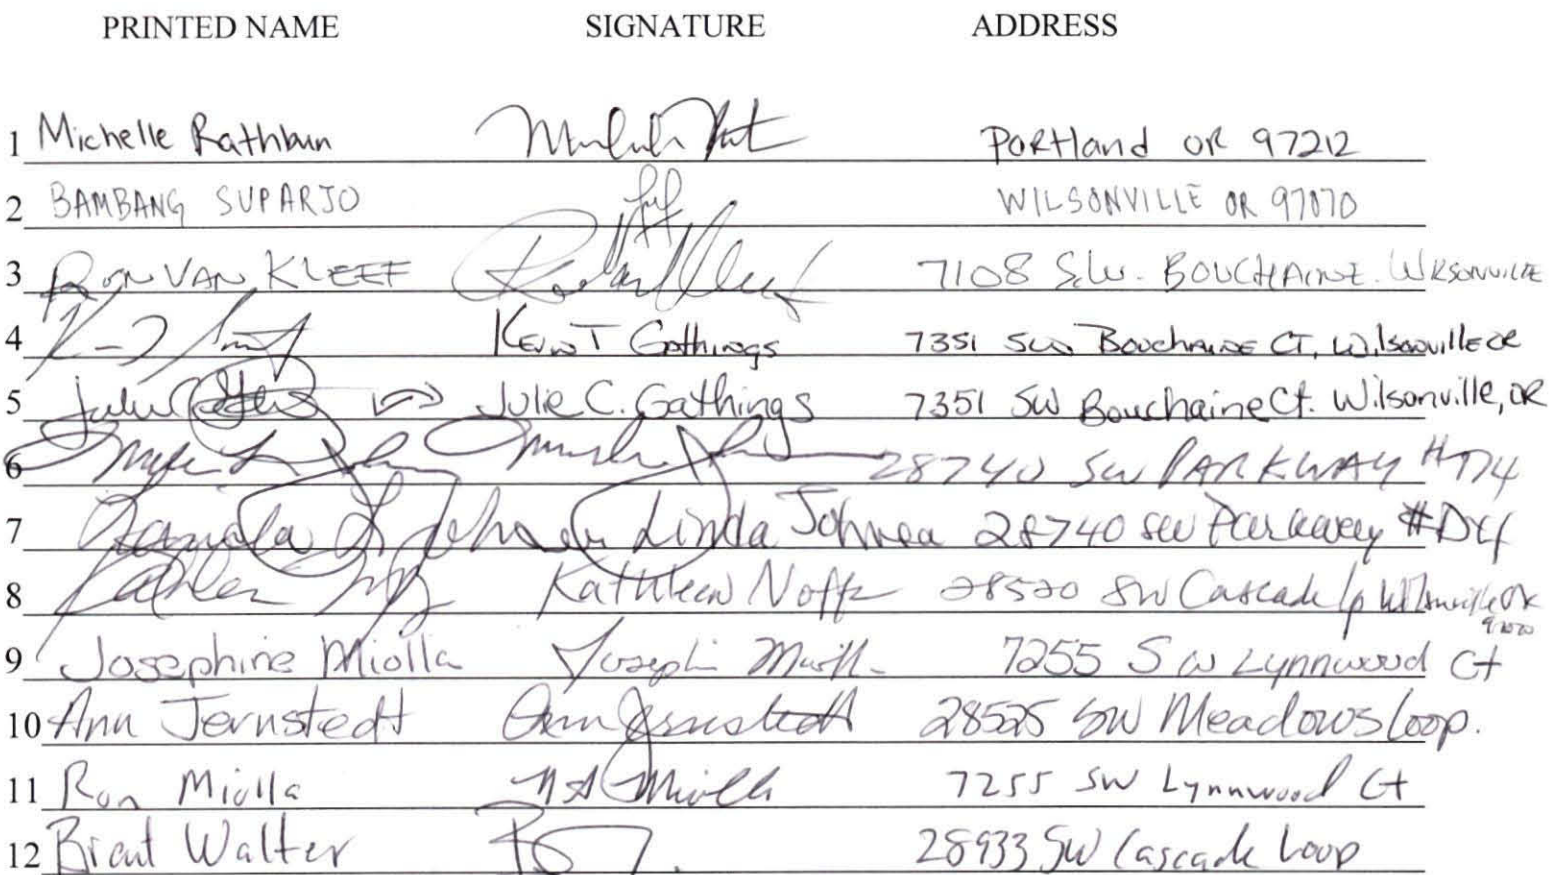 PRINTED NAME SIGNATURE ADDRESS
1 Michelle Rathbun PORTland OR 97212
2 BAMBANG SUPARJO WILSONVILLE OR 97070
3 RON VAN KLEEF 7108 S.W. BOUCHAINE. WILSONVILLE
4 Kevin T Gathings 7351 SW Bouchaine CT, Wilsonville OR
5 Julie C. Gathings 7351 SW Bouchaine Ct. Wilsonville, OR
6 28740 SW PARKWAY
7 Linda 28740 SW Parkway #D4
8 Kathleen 28520 SW Cascade lp Wilsonville OR
97070
9 Josephine Miolla 7255 SW Lynnwood Ct
10 Ann Jernstedt Ann Jernstedt 28525 SW Meadows Loop.
11 Ron Miolla Miolla 7255 SW Lynnwood Ct
12 Brent Walter 28933 SW Cascade Loop